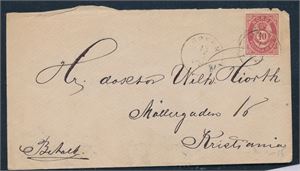 10
Hr. doktor Wilh. Hiorth
Møllergaden 16
Kristiania
Betalt.